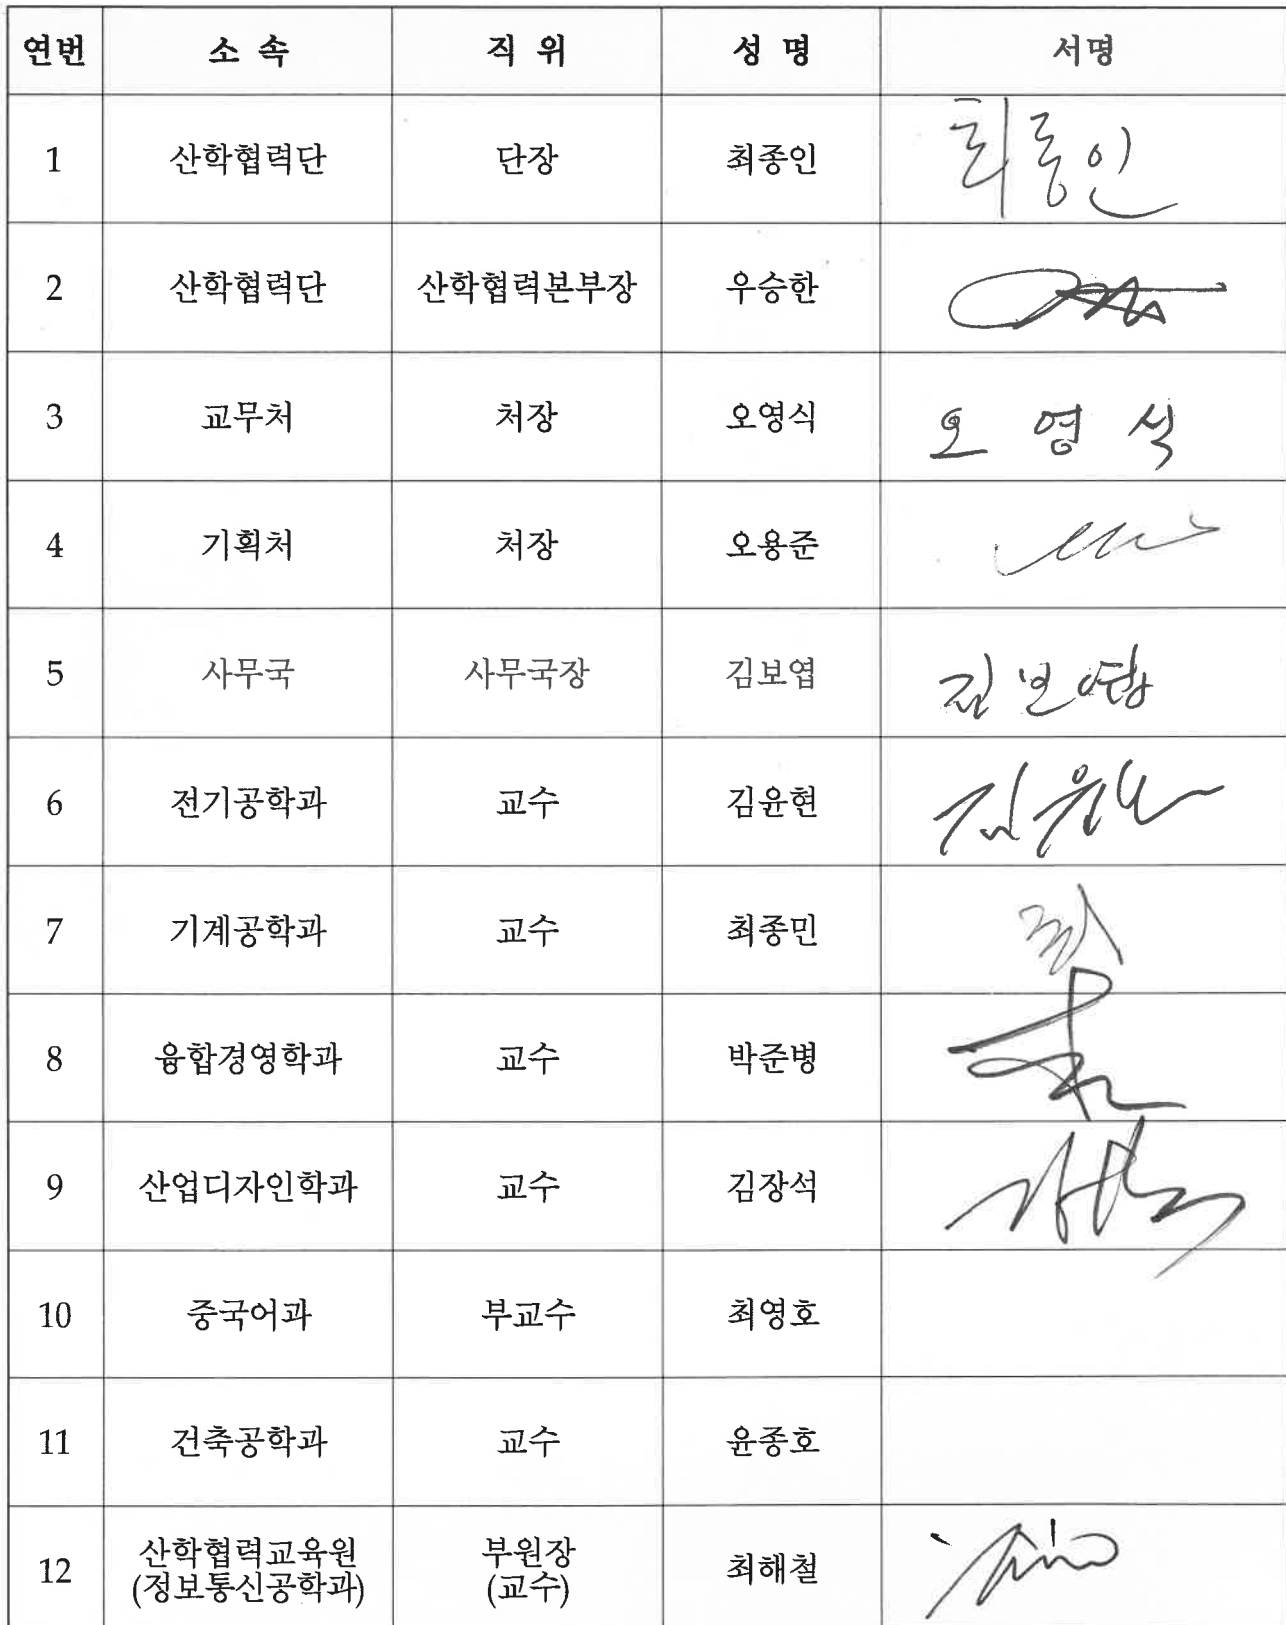 연번 소 속 직 위 성 명 서명
1 산학협력단 단장 최종인 최종인
2 산학협력단 산학협력본부장 우승한
3 교무처 처장 오영식 오 영 식
4 기획처 처장 오용준
5 사무국 사무국장 김보엽 김보엽
6 전기공학과 교수 김윤현
7 기계공학과 교수 최종민
8 융합경영학과 교수 박준병
9 산업디자인학과 교수 김장석
10 중국어과 부교수 최영호
11 건축공학과 교수 윤종호
12 산학협력교육원 부원장 최해철
(정보통신공학과) (교수)